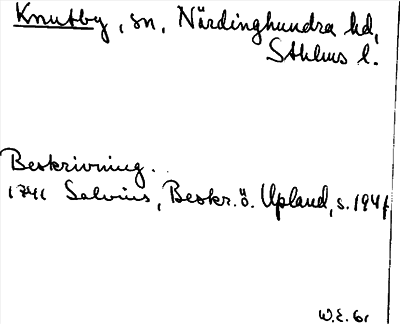 Knutby, sn, Närdinghundra hd,
Sthlms l.
Beskrivning.
1741 Salvius, Beskr. ö. Upland, s. 194f
W.E. 61